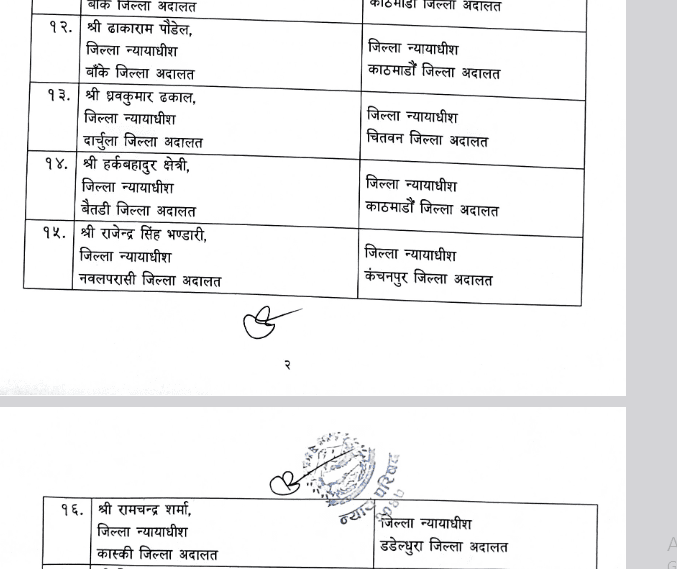 बाँके जिल्ला अदालत
काठमाडौं जिल्ला अदालत
१२. श्री ढाकाराम पौडेल,
जिल्ला न्यायाधीश
बाँके जिल्ला अदालत
जिल्ला न्यायाधीश
काठमाडौं जिल्ला अदालत
१३. श्री ध्रवकुमार ढकाल,
जिल्ला न्यायाधीश
दार्चुला जिल्ला अदालत
जिल्ला न्यायाधीश
चितवन जिल्ला अदालत
१४. श्री हर्कबहादुर क्षेत्री,
जिल्ला न्यायाधीश
बैतडी जिल्ला अदालत
जिल्ला न्यायाधीश
काठमाडौं जिल्ला अदालत
१५. श्री राजेन्द्र सिंह भण्डारी,
जिल्ला न्यायाधीश
नवलपरासी जिल्ला अदालत
जिल्ला न्यायाधीश
कंचनपुर जिल्ला अदालत
२
न्याय परिषद
१६. श्री रामचन्द्र शर्मा,
जिल्ला न्यायाधीश
कास्की जिल्ला अदालत
जिल्ला न्यायाधीश
डडेल्धुरा जिल्ला अदालत